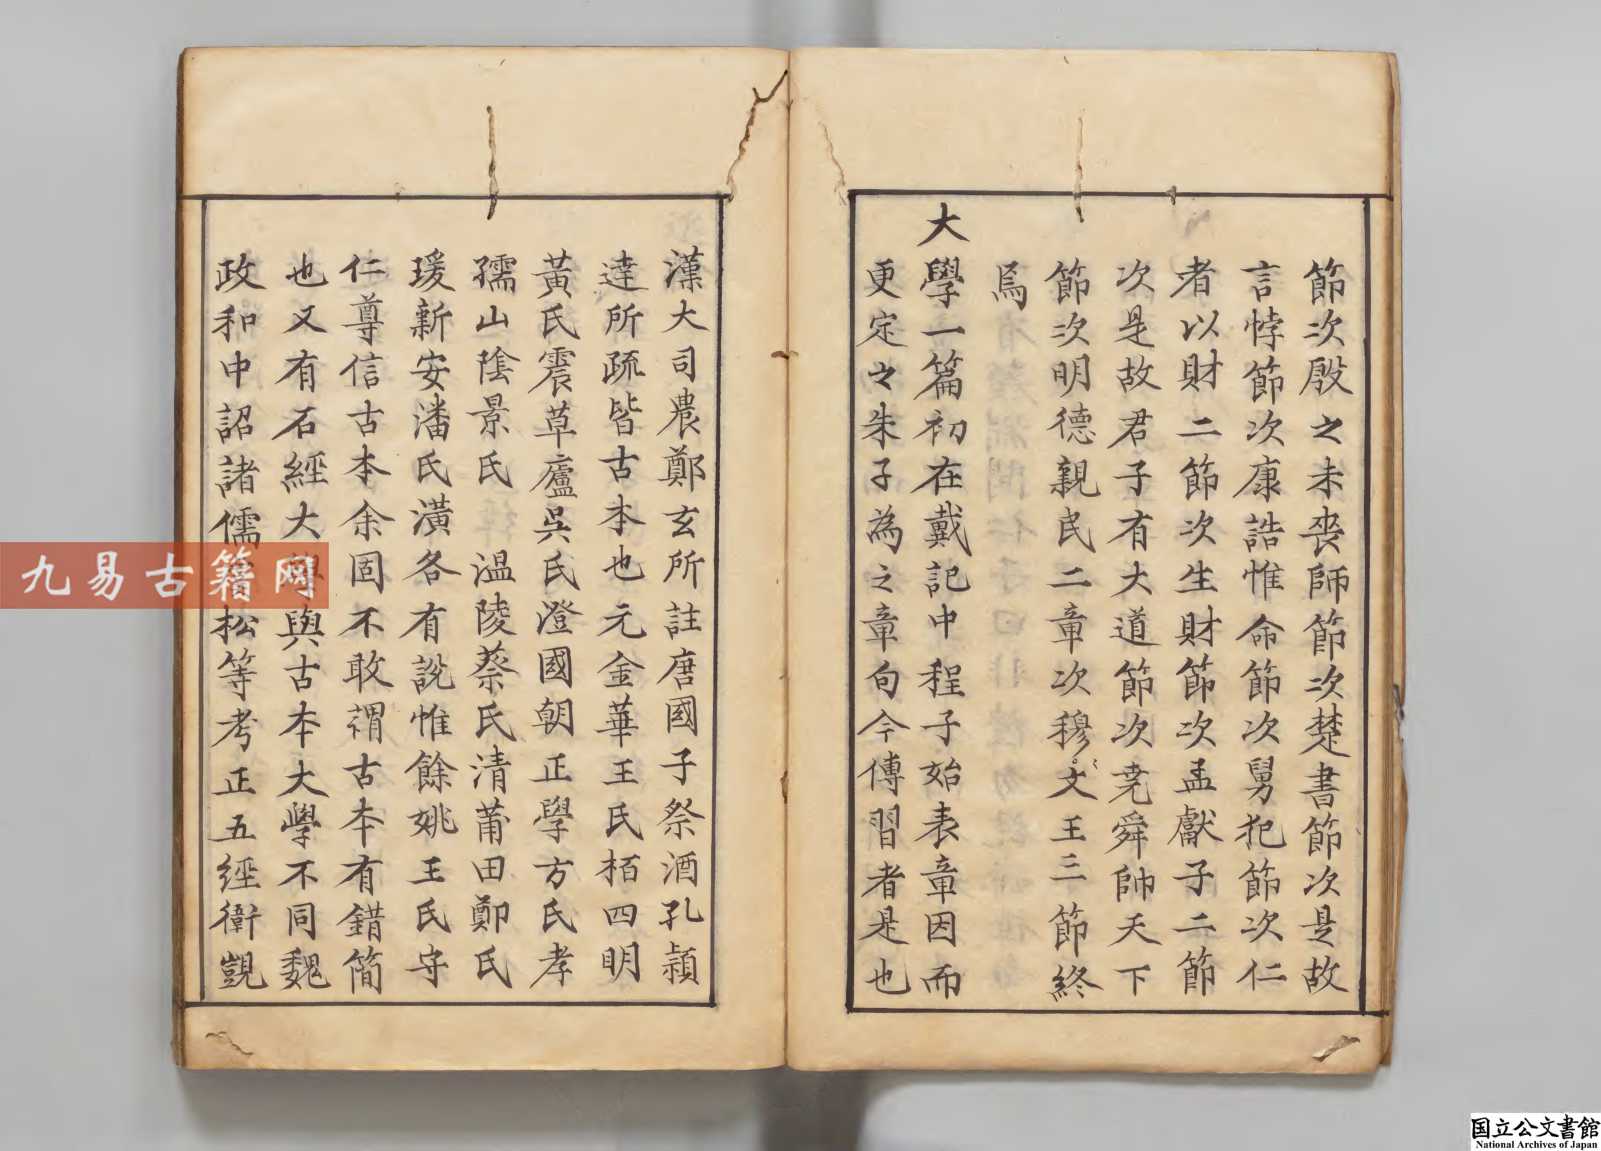 節次殷之未喪師節次楚書節次是故
言悖節次康誥惟命節次舅犯節次仁
者以財二節次生財節次孟獻子二節
次是故君子有大道節次堯舜帥天下
節次明德親民二章次穆文王三節終
焉
大學一篇初在戴記中程子始表章因而
更定之朱子為之章句今傳習者是也
漢大司農鄭玄所註唐國子祭酒孔穎
達所疏皆古本也元金華王氏栢四明
黃氏震草廬吳氏澄國朝正學方氏孝
孺山陰景氏 溫陵蔡氏清莆田鄭氏
瑗新安潘氏潢各有說惟餘姚王氏守
仁尊信古本余固不敢謂古本有錯簡
也又有石經大學與古本大學不同魏
政和中詔諸儒松等考正五經衛覬
九易古籍网
国立公文書館
National Archives of Japan